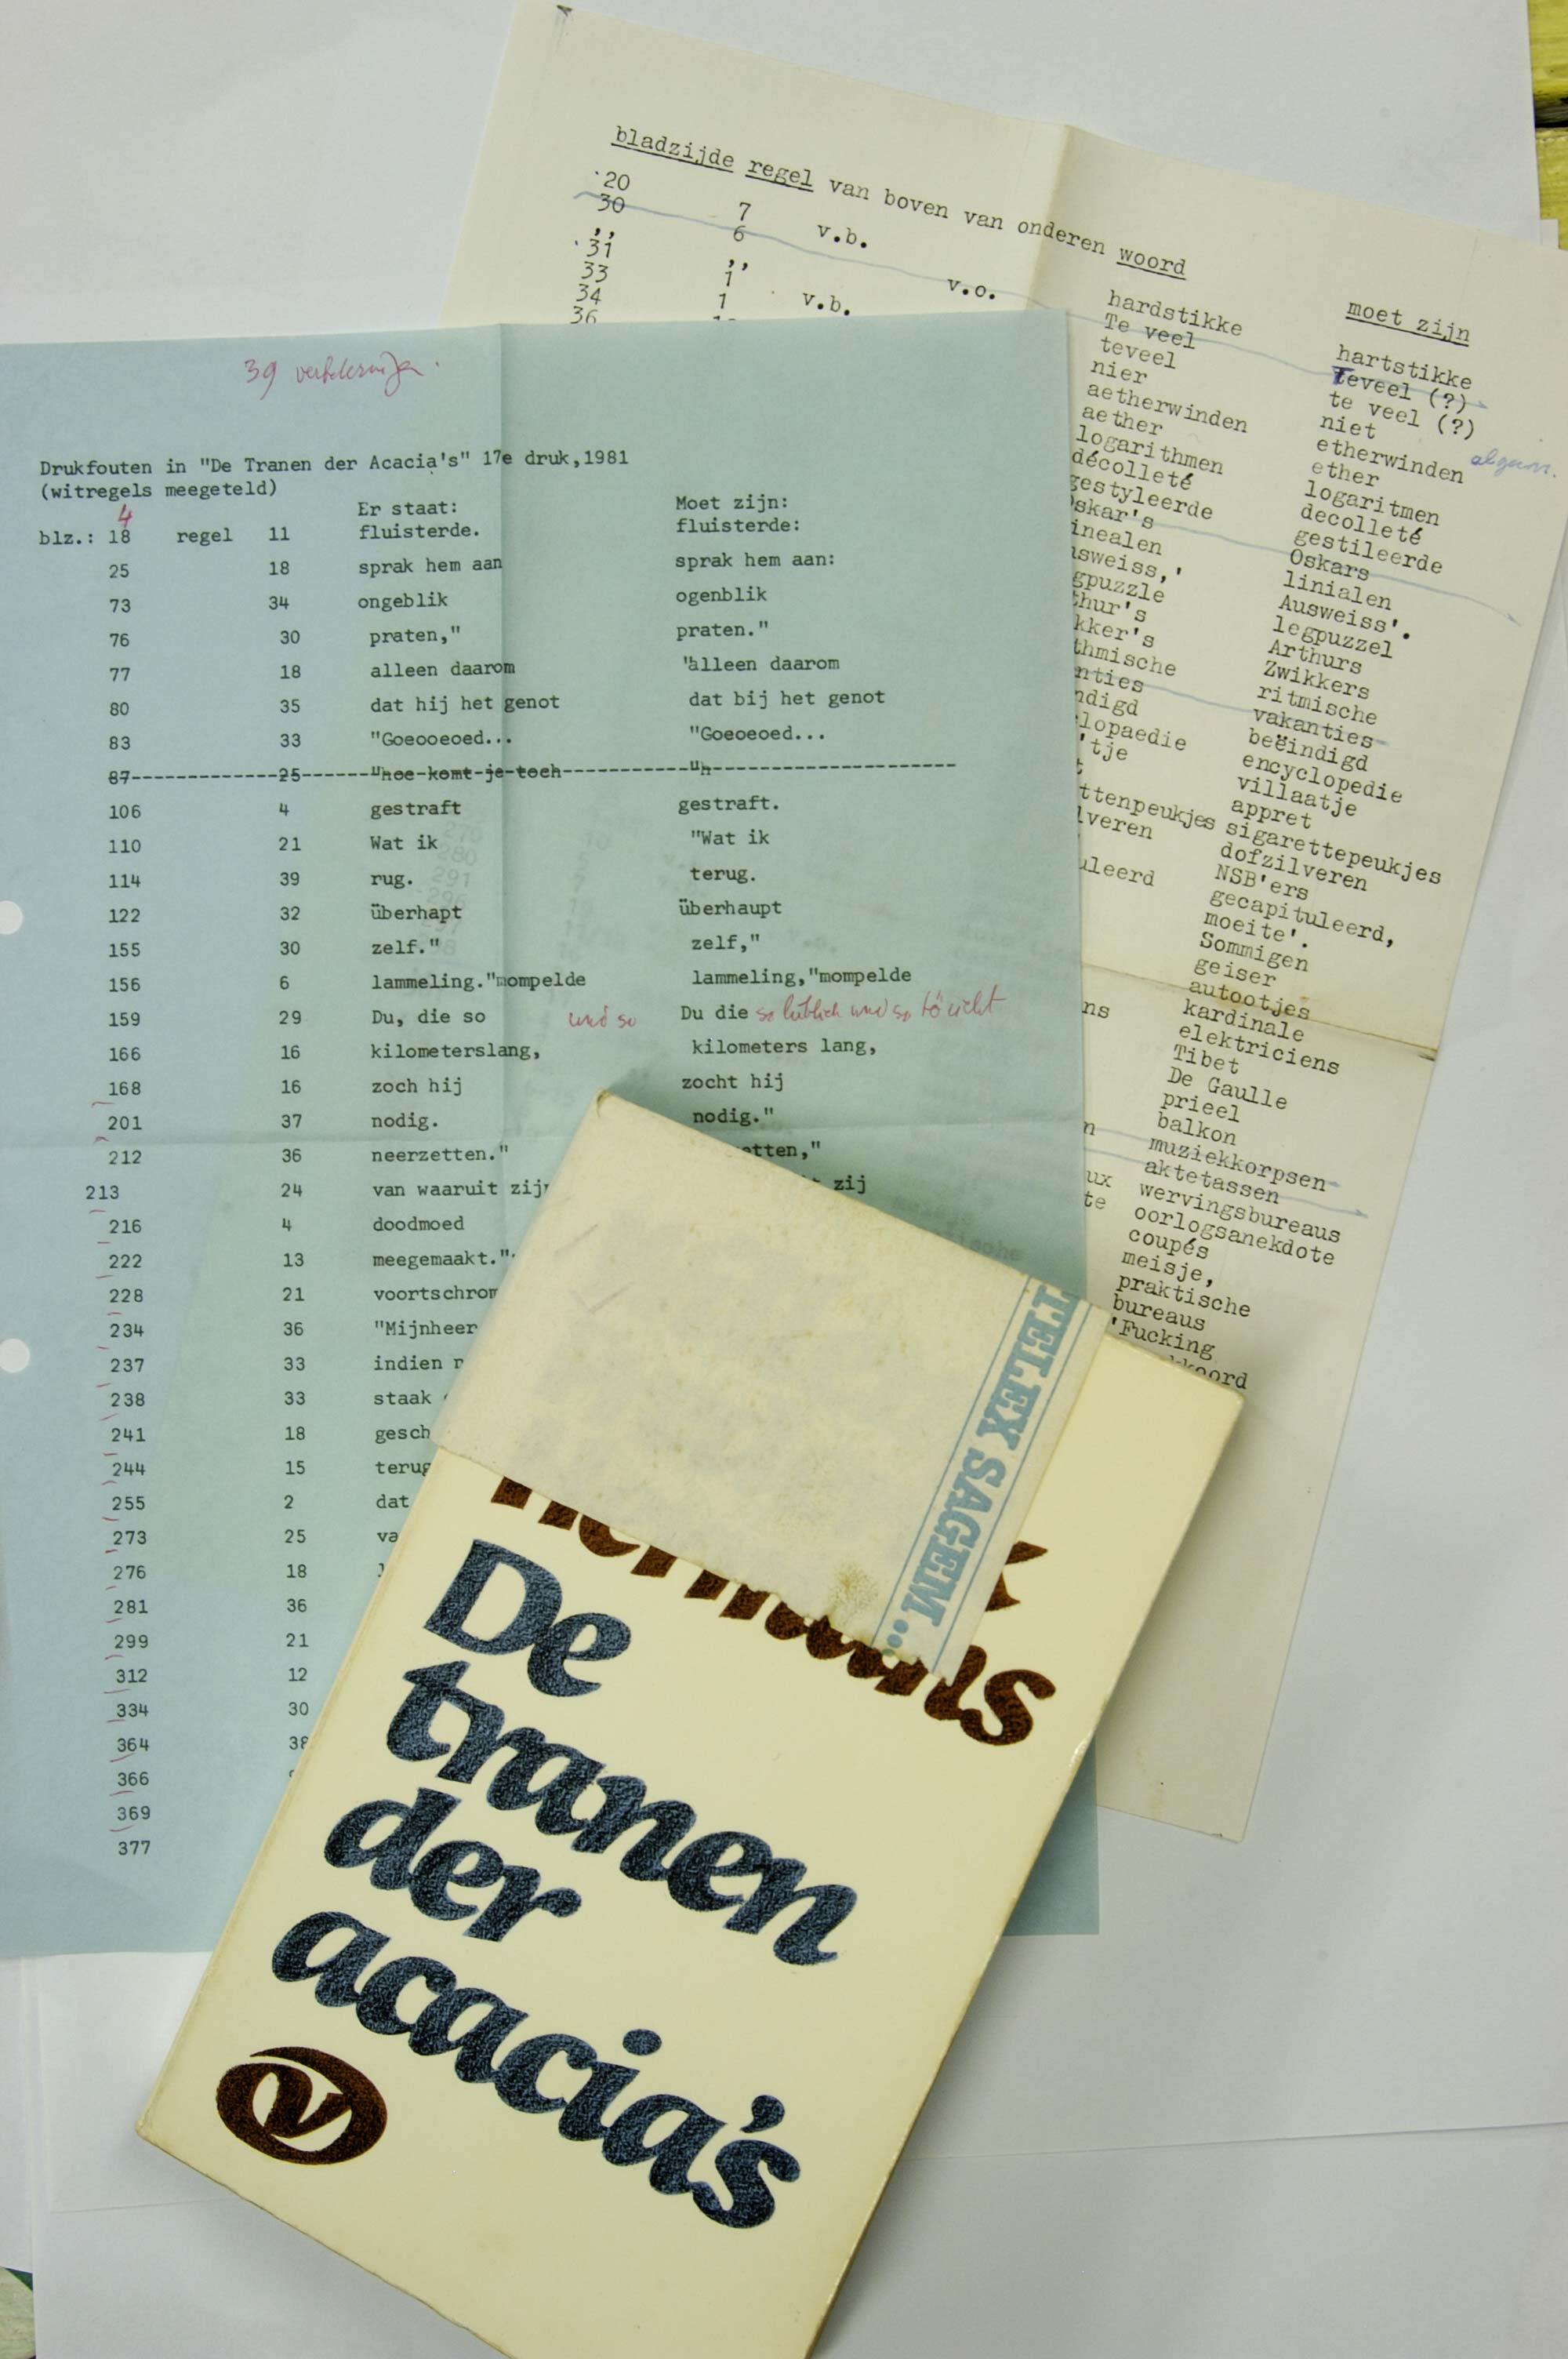 bladzijde regel van boven van onderen woord
moet zijn
20 7 v.b. hardstikke hartstikke
30 6 v.o. Te veel Teveel (?)
,, ,, teveel te veel (?)
31 1 v.b. nier niet
33 1 aetherwinden etherwinden
34 aether ether
36 logarithmen logaritmen
décolleté decolleté
gestyleerde gestileerde
Oskars
linialen
Ausweiss'.
legpuzzel
Arthurs
Zwikkers
ritmische
vakanties
beëindigd
encyclopedie
villaatje
appret
sigarettepeukjes
dofzilveren
NSB'ers
gecapituleerd,
moeite'.
Sommigen
geiser
autootjes
kardinale
elektriciens
Tibet
De Gaulle
prieel
balkon
muziekkorpsen
aktetassen
wervingsbureaus
oorlogsanekdote
coupés
meisje,
praktische
bureaus
'Fucking
39 verbeteringen.
Drukfouten in "De Tranen der Acacia's" 17e druk,1981
(witregels meegeteld)
Er staat: Moet zijn:
4
blz.: 18 regel 11 fluisterde. fluisterde:
25 18 sprak hem aan sprak hem aan:
73 34 ongeblik ogenblik
76 30 praten," praten."
77 18 alleen daarom "alleen daarom
80 35 dat hij het genot dat bij het genot
83 33 "Goeooeoed... "Goeoeoed...
87 25 "hoe komt je toch "h
106 4 gestraft gestraft.
110 21 Wat ik "Wat ik
114 39 rug. terug.
122 32 überhapt überhaupt
155 30 zelf." zelf,"
156 6 lammeling."mompelde lammeling,"mompelde
159 29 Du, die so und so Du die so lieblich und so töricht
166 16 kilometerslang, kilometers lang,
168 16 zoch hij zocht hij
201 37 nodig. nodig."
212 36 neerzetten." etten,"
213 24 van waaruit zij zij
216 4 doodmoed
222 13 meegemaakt."
228 21 voortschrom
234 36 "Mijnheer
237 33 indien
238 33 staak
241 18 gesch
244 15 terug
255 2 dat
273 25 va
276 18
281 36
299 21
312 12
334 30
364 38
366
369
377
TELEX SAGEM...
hermans
De
tranen
der
acacia's